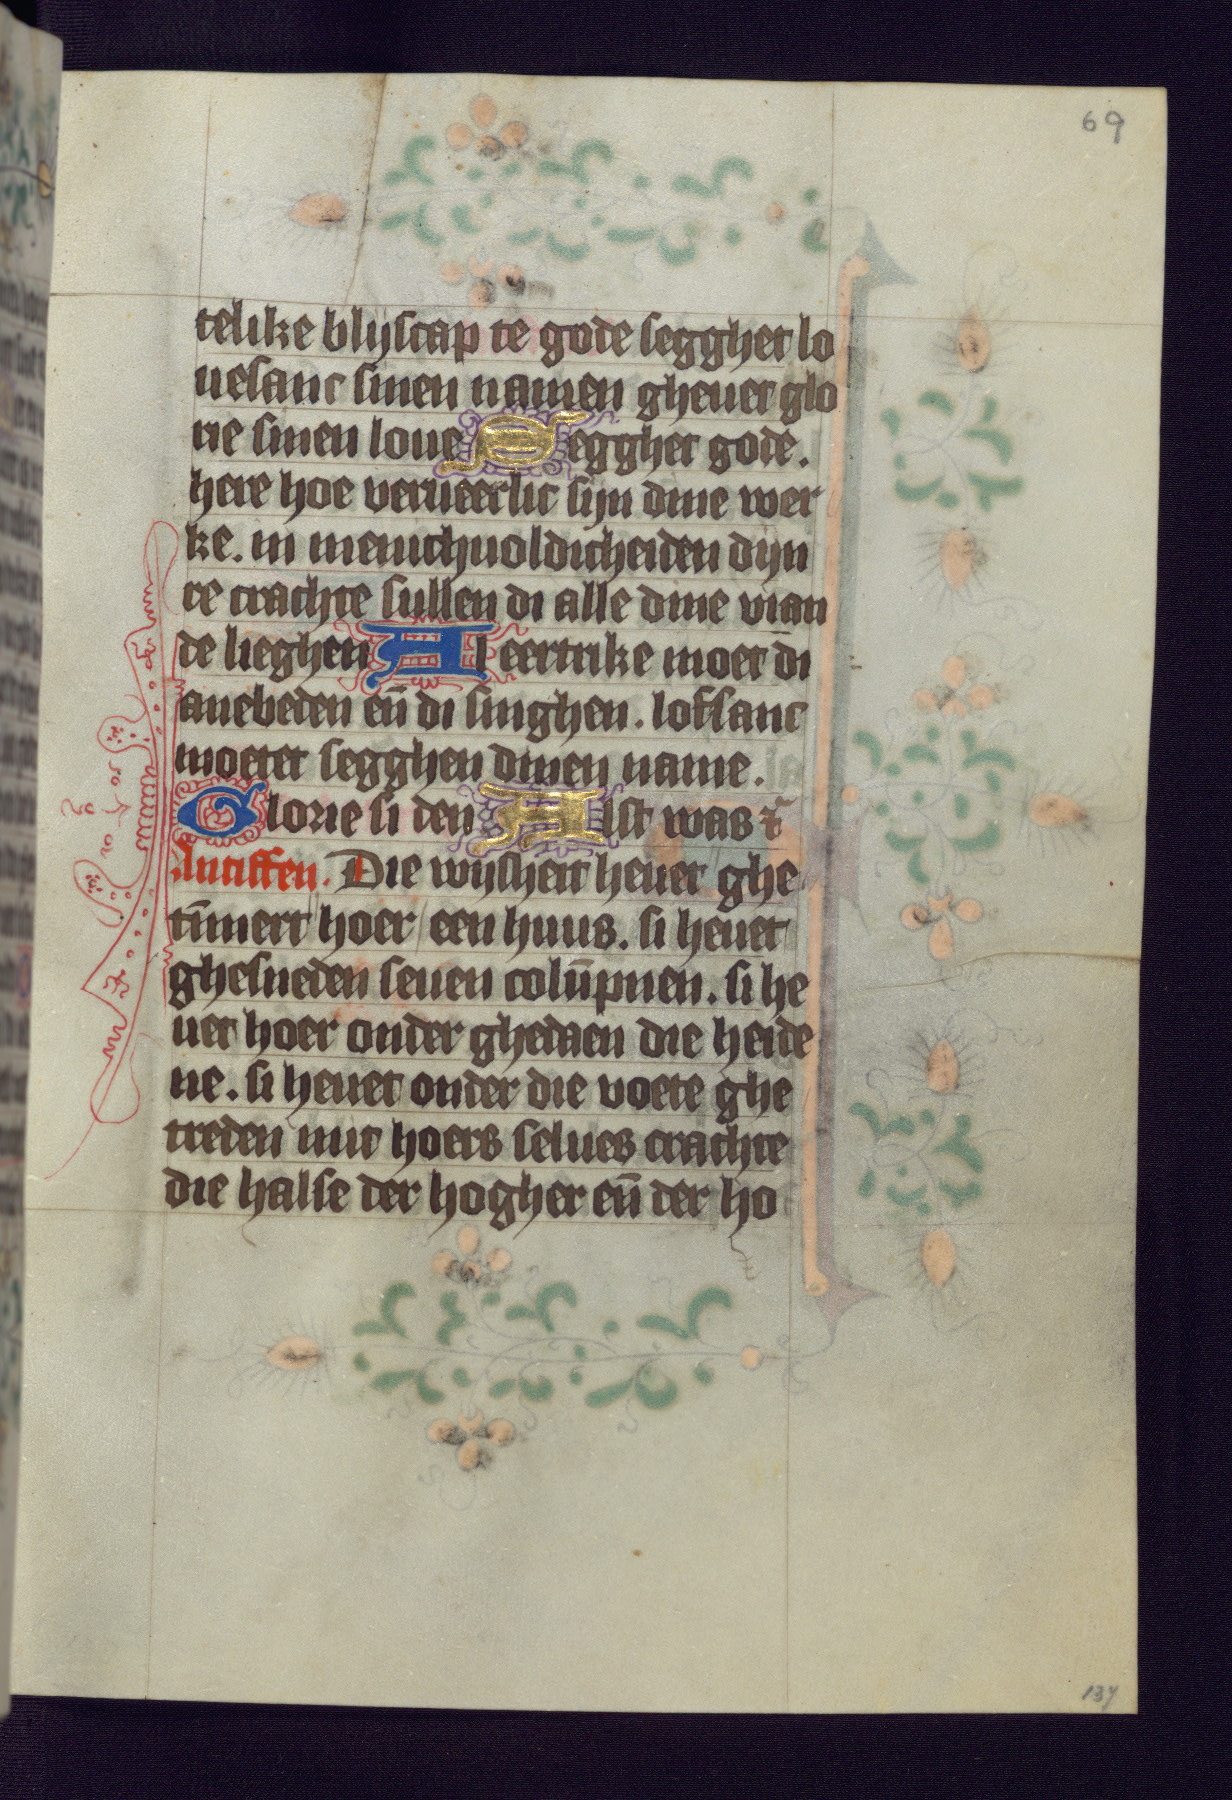 69
telike blijscap te gode segghet lo
uesanc sinen namen gheuet glo
rie sinen loue Segghet gode.
here hoe verueerlic sijn dine wer
ke. in menichuoldicheiden dijn
re crachte sullen di alle dine vian
de lieghen Al eertrike moet di
anebeden en̄ di singhen. lofsanc
moetet segghen dinen name.
Glorie si den Alst was ⁊
Antiffen. Die wijsheit heuet ghe
tīmert hoer een huus. si heuet
ghesneden seuen colūpnen. si he
uet hoer onder ghedaen die heide
ne. si heuet onder die voete ghe
treden mit hoers selues crachte
die halse der hogher en̄ der ho
137